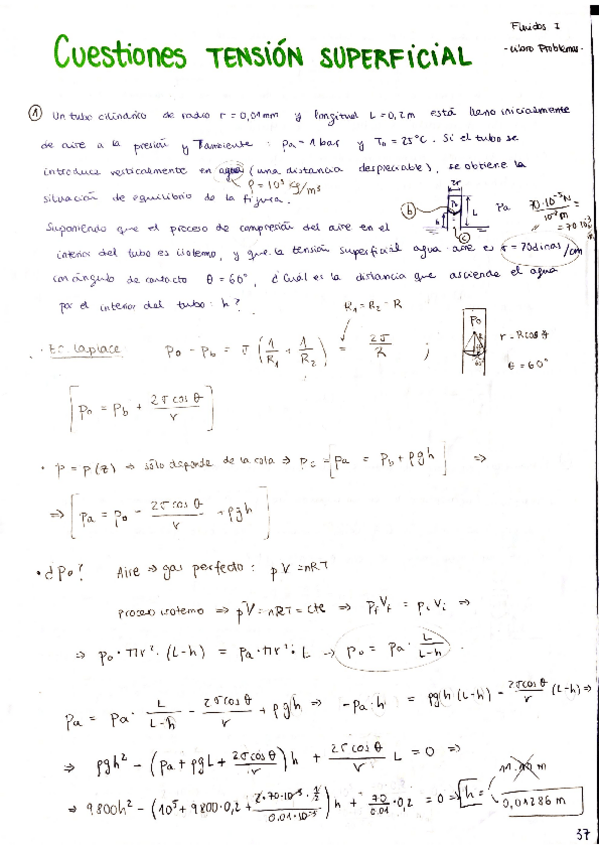 Fluidos I
- Libro Problemas -
Cuestiones TENSIÓN SUPERFICIAL
① Un tubo cilíndrico de radio r = 0,01mm y longitud L = 0,2m está lleno inicialmente
de aire a la presión y Tambiente : Pa = 1 bar y To = 25°C. Si el tubo se
introduce verticalmente en agua (una distancia despreciable), se obtiene la
ρ = 10³ kg/m³
situación de equilibrio de la figura.
2r
Po
L
h
b
c
Pa
70·10⁻⁵N / 10⁻²m =
= 70·10⁻³
Suponiendo que el proceso de compresión del aire en el
interior del tubo es isotermo, y que la tensión superficial agua-aire es σ = 70dinas/cm
con ángulo de contacto θ = 60°, ¿Cuál es la distancia que asciende el agua
por el interior del tubo: h?
R₁ = R₂ = R
· Ec. Laplace Po - Pb = σ (1/R₁ + 1/R₂) = 2σ/R ;
Po
r = Rcos θ
θ = 60°
[Po = Pb + 2σ cos θ / r]
· p = p(z) ⇒ sólo depende de la cota ⇒ Pc = [Pa = Pb + ρgh] ⇒
⇒ [Pa = Po - 2σcos θ / r + ρgh]
· ¿Po? Aire ⇒ gas perfecto: pV = nRT
Proceso isotermo ⇒ pV = nRT = cte ⇒ Pf Vf = Pi Vi ⇒
⇒ Po · πr² · (L-h) = Pa · πr² · L → Po = Pa · L/(L-h)
Pa = Pa · L/(L-h) - 2σcos θ / r + ρgh ⇒ -Pa·h = ρgh (L-h) - 2σcos θ / r (L-h) ⇒
⇒ ρgh² - (Pa + ρgL + 2σcos θ / r) h + 2σ cos θ / r L = 0 ⇒
⇒ 9800h² - (10⁵ + 9800·0,2 + 2·70·10⁻³·½ / 0.01·10⁻³) h + 70/0.01 · 0,2 = 0 ⇒ h =
0,01286 m
37